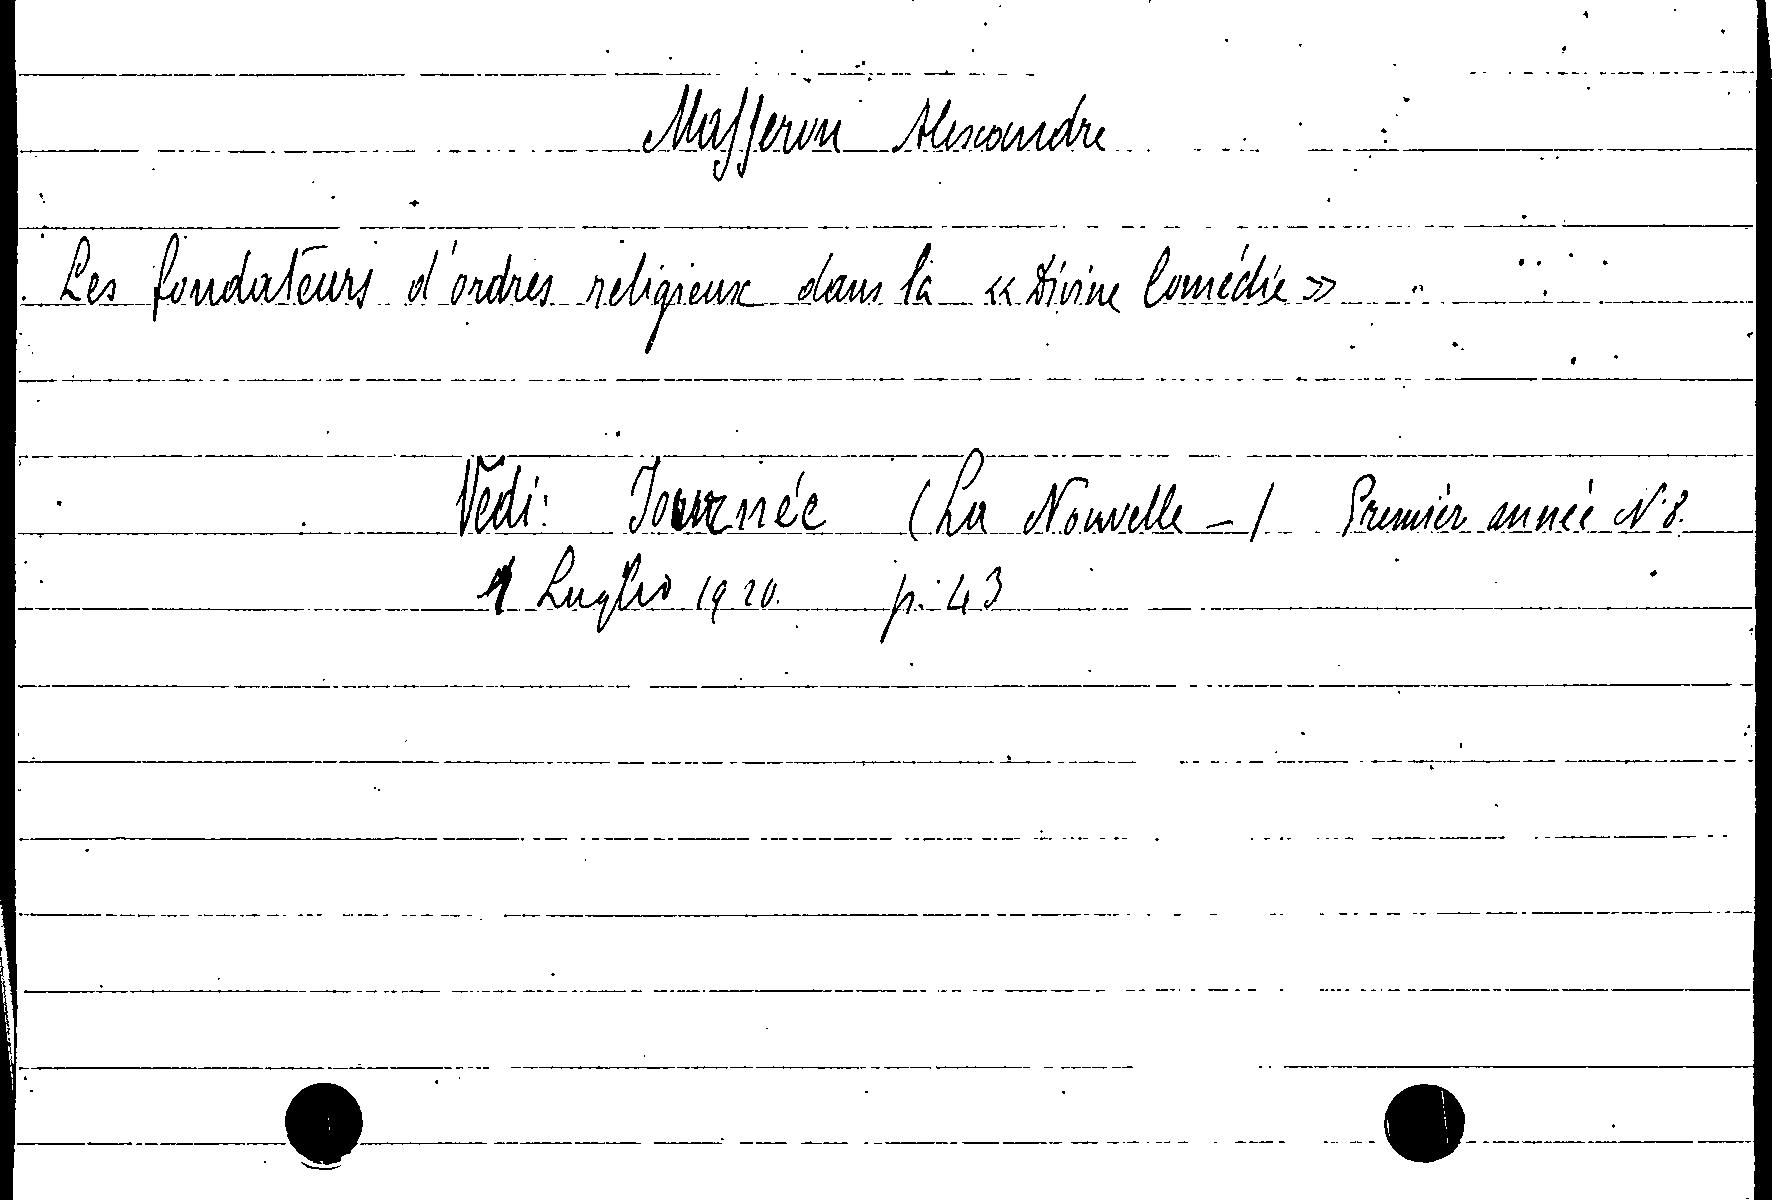 Masseron Alexandre
Les fondateurs d'ordres religieux dans la « Divine Comédie »
Vedi: Journée (La Nouvelle -) Premiér année N. 8.
1 Luglio 1920. p. 43